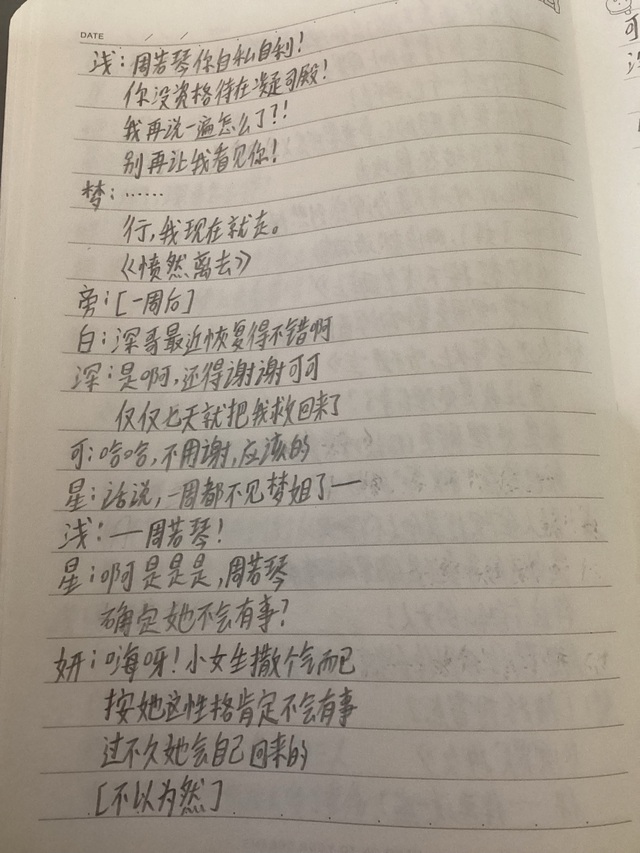 DATE / /
浅：周若琴你自私自利！
你没资格待在凝司殿！
我再说一遍怎么了？！
别再让我看见你！
梦：……
行，我现在就走。
《愤然离去》
旁：[一周后]
白：深哥最近恢复得不错啊
深：是啊，还得谢谢可可
仅仅七天就把我救回来了
可：哈哈，不用谢，应该的
星：话说，一周都不见梦姐了—
浅：—周若琴！
星：啊是是是，周若琴
确定她不会有事？
妍：嗨呀！小女生撒个气而已
按她这性格肯定不会有事
过不久她会自己回来的
[不以为然]
可